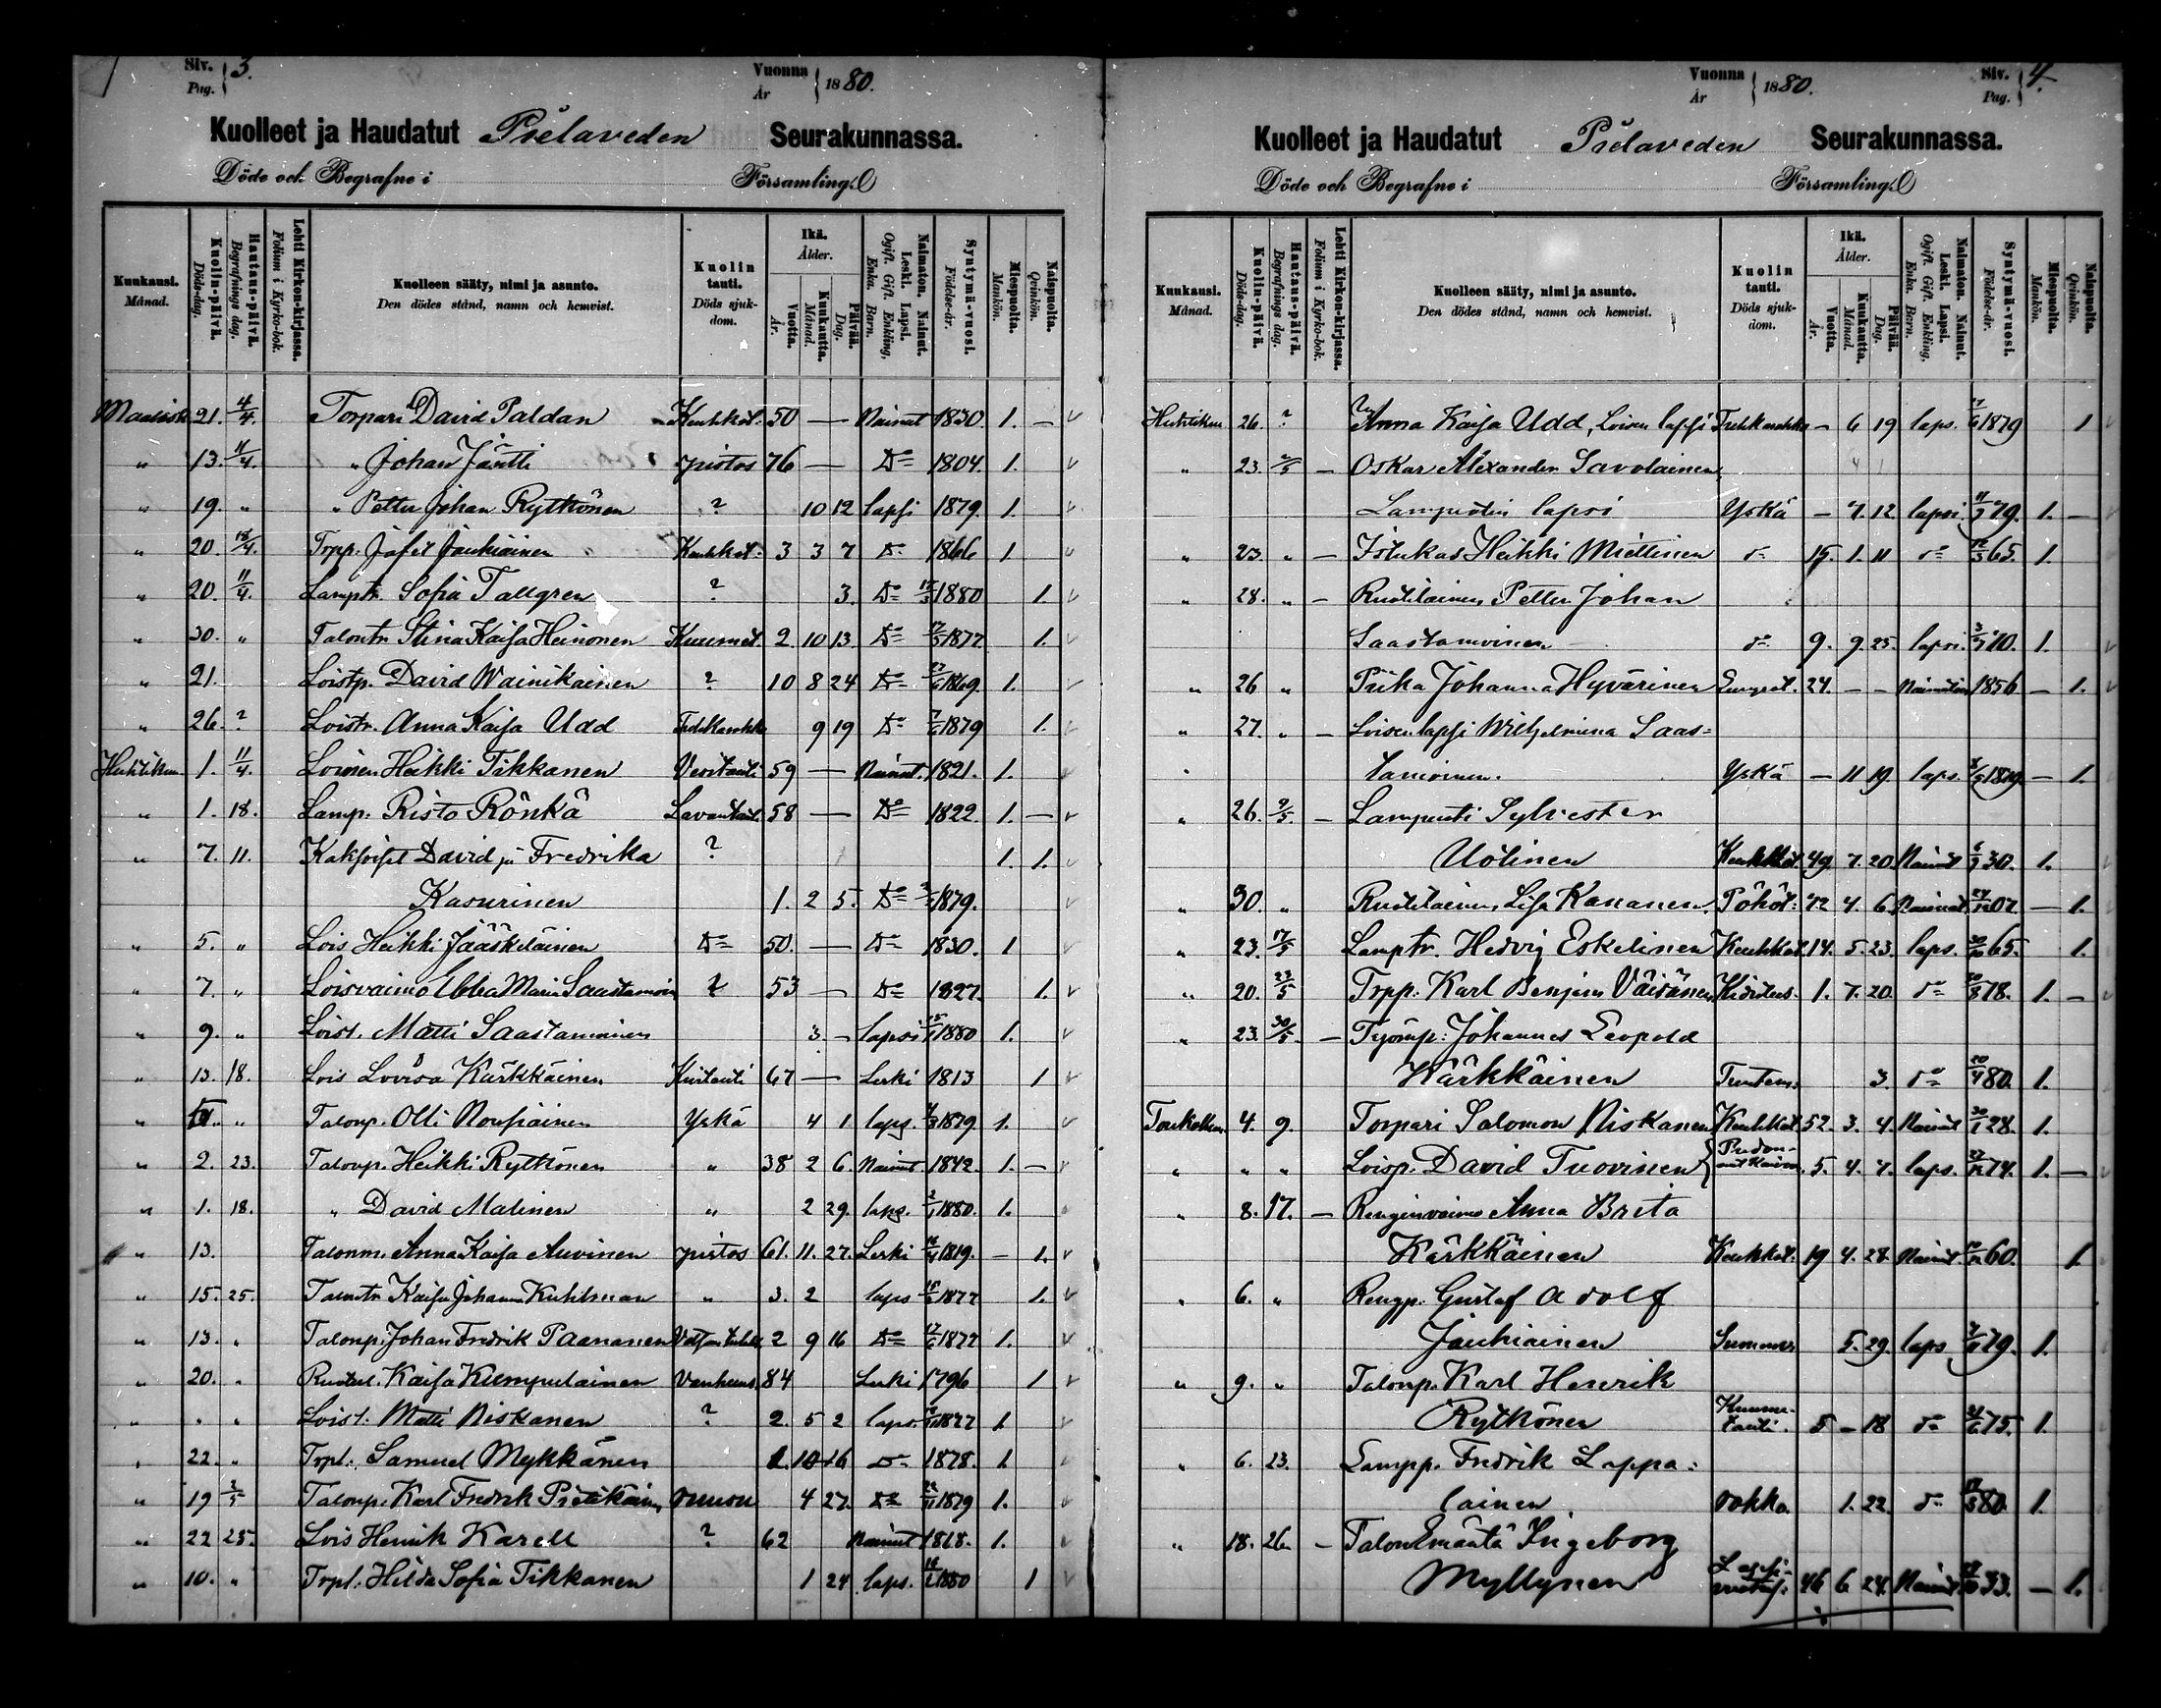 Siv. Pag. } 3.
Vuonna År } 1880.
Kuolleet ja Haudatut Pielaveden Seurakunnassa.
Döde och Begrafne i Församling.
Kuukausi. Månad.
Kuolin-päivä. Döds-dag.
Hautaus-päivä. Begrafnings dag.
Lehti Kirkon-kirjassa. Folium i Kyrko-bok.
Kuolleen sääty, nimi ja asunto. Den dödes stånd, namn och hemvist.
Kuolin tauti. Döds sjukdom.
Ikä. Ålder.
Vuotta. År.
Kuukautta. Månad.
Päivää. Dag.
Naimaton. Nainut. Leski. Lapsi. Ogift. Gift. Enkling. Enka. Barn.
Syntymä-vuosi. Födelse-år.
Miespuolta. Mankön.
Naispuolta. Qvinkön.
Maalisk 21. 4/4. Torpari David Paldan Keuhkot. 50 — Nainut 1830. 1. —
" 13. 11/4. " Johan Jäntti pistos 76 — Do 1804. 1.
" 19. " " Petter Johan Rytkönen ? 10 12 lapsi 1879. 1.
" 20. 18/4. Trpp. Jafet Jauhiainen Keuhkot. 3 3 7 Do 1866 1.
" 20. 11/4. Lamptr. Sofia Tallgren ? 3. Do 1880 1.
" 30. " Talontr. Stina Kaisa Heinonen Kuumet. 2. 10 13 Do 1877. 1.
" 21. Loistp. David Wainikainen ? 10 8 24 Do 1869. 1.
" 26. ? Loistr. Anna Kaisa Udd 9 19 Do 1879 1.
Huhtikuu 1. 11/4. Loinen Heikki Tikkanen Veritauti 59 — Nainut. 1821. 1.
" 1. 18. Lamp. Risto Rönkä Lavantaut. 58 — Do 1822. 1. —
" 7. 11. Kaksoiset David ja Fredrika ? 1. 1.
Kasurinen 1. 2 5. Do 1879.
" 5. " Lois Heikki Jääskeläinen Do 50. — Do 1830. 1
" 7. " Loisvaimo Ebba Maria Saastamoin ? 53 — Do 1827. 1.
" 9. " Loist. Matti Saastamoinen 3. — lapsi 1880 1.
" 13. 18. Lois Lovisa Kärkkäinen 67 — Leski 1813 1
" " Talonp. Olli Nousiainen Yskä 4 1 laps. 1879. 1.
" 2. 23. Talonp. Heikki Rytkönen " 38 2 6. Nainut 1842. 1. —
" 1. 18. " David Malinen " 2 29. laps. 1880. 1.
" 13. Talonm. Anna Kaisa Auvinen pistos 61. 11. 27. Leski 1819. — 1.
" 15. 25. Talontr Kaisa Johanna Kuhlman " 3. 2 laps 1877 1.
" 13. " Talonp. Johan Fredrik Paananen 2 9 16 Do 1877 1.
" 20. " Ruotul. Kaisa Kumpulainen Vanhuus 84 Leski 1796 1
" " " Loist. Matti Niskanen ? 2. 5 2 laps. 1877 1.
" 22. " Trpl. Samuel Mykkänen 1. 10 16 Do 1878. 1
" 19 2/5 Talonp. Karl Fredrik Pietikäin 4 27. Do 1879 1.
" 22 25. Lois Henrik Karell ? 62 Nainut 1818. 1.
" 10. " Trpl. Hilda Sofia Tikkanen 1 24 laps. 1880 1
Vuonna År } 1880.
Siv. Pag. } 4.
Kuolleet ja Haudatut Pielaveden Seurakunnassa.
Döde och Begrafne i Församling.
Kuukausi. Månad.
Kuolin-päivä. Döds-dag.
Hautaus-päivä. Begrafnings dag.
Lehti Kirkon-kirjassa. Folium i Kyrko-bok.
Kuolleen sääty, nimi ja asunto. Den dödes stånd, namn och hemvist.
Kuolin tauti. Döds sjukdom.
Ikä. Ålder.
Vuotta. År.
Kuukautta. Månad.
Päivää. Dag.
Naimaton. Nainut. Leski. Lapsi. Ogift. Gift. Enkling. Enka. Barn.
Syntymä-vuosi. Födelse-år.
Miespuolta. Mankön.
Naispuolta. Qvinkön.
Huhtikuu 26. ? Anna Kaisa Udd, Loisen lapsi — 6 19 laps. 1879 1
" 23. 2/5 — Oskar Alexander Savolainen,
lapsi Yskä — 7. 12. lapsi. 79. 1. —
" 23. " — Itsekäs Heikki Miettinen do 15. 1. 11 do 12/3 65. 1.
" 28. " — Ruotilainen Petter Johan
Saastamoinen do 9. 9. 25. lapsi. 1.
" 26 " Piika Johanna Hyvärinen 24. — — Naimaton 1856 — 1.
" 27. " — Loisenlapsi Wilhelmina Saas=
tamoinen. Yskä — 11 19. laps. 1879. — 1.
" 26. 9/5. — Lampuoti Sylvester
Uotinen Keuhkot 49. 7. 20. Nainut 30. 1.
" 30. " Ruotilainen, Lisa Kananen. Pöhöt. 72 4. 6. Nainut 07. — 1.
" 23. 17/5 Lamptr. Hedvig Eskelinen Keuhkot. 14. 5. 23. laps. 65. 1.
" 20. 23/5 Trpp. Karl Benjam Väisänen 1. 7. 20. do 78. 1. —
" 23. 30/5. — Työmp. Johannes Leopold
Kärkkäinen 3. do 20/4 80. 1.
Toukokuu 4. 9. Torpari Salomon Niskanen Keuhkot. 52. 3. 4. Nainut 30/1 28. 1.
" " " Loisp. David Tuovinen 5. 4. 7. laps. 74. 1. —
" 8. 17. — Renginvaimo Anna Brita
Kärkkäinen Keuhkot. 19 4. 28. Nainut. 60. 1.
" 6. " Rengp. Gustaf Adolf
Jauhiainen 5. 29. laps 79. 1.
" 9. " Talonp. Karl Henrik
Rytkönen Kuume- tauti. 5 — 18 do 75. 1.
" 6. 23. Lampp. Fredrik Lappa=
lainen rokko. 1. 22. do 80. 1.
" 18. 26. — Talon Emäntä Ingeborg
Myllynen 46 6 24. Nainut 33. — 1.